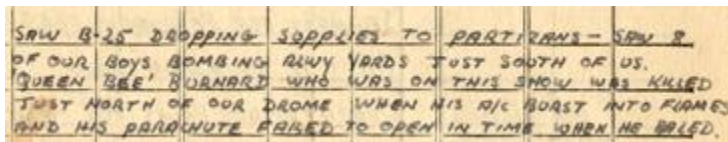 SAW B-25 DROPPING SUPPLIES TO PARTIZANS - SAW 8
OF OUR BOYS BOMBING RLWY YARDS JUST SOUTH OF US.
'QUEEN BEE' BURNARD WHO WAS ON THIS SHOW WAS KILLED
JUST NORTH OF OUR DROME WHEN HIS A/C BURST INTO FLAMES
AND HIS PARACHUTE FAILED TO OPEN IN TIME WHEN HE BALED.